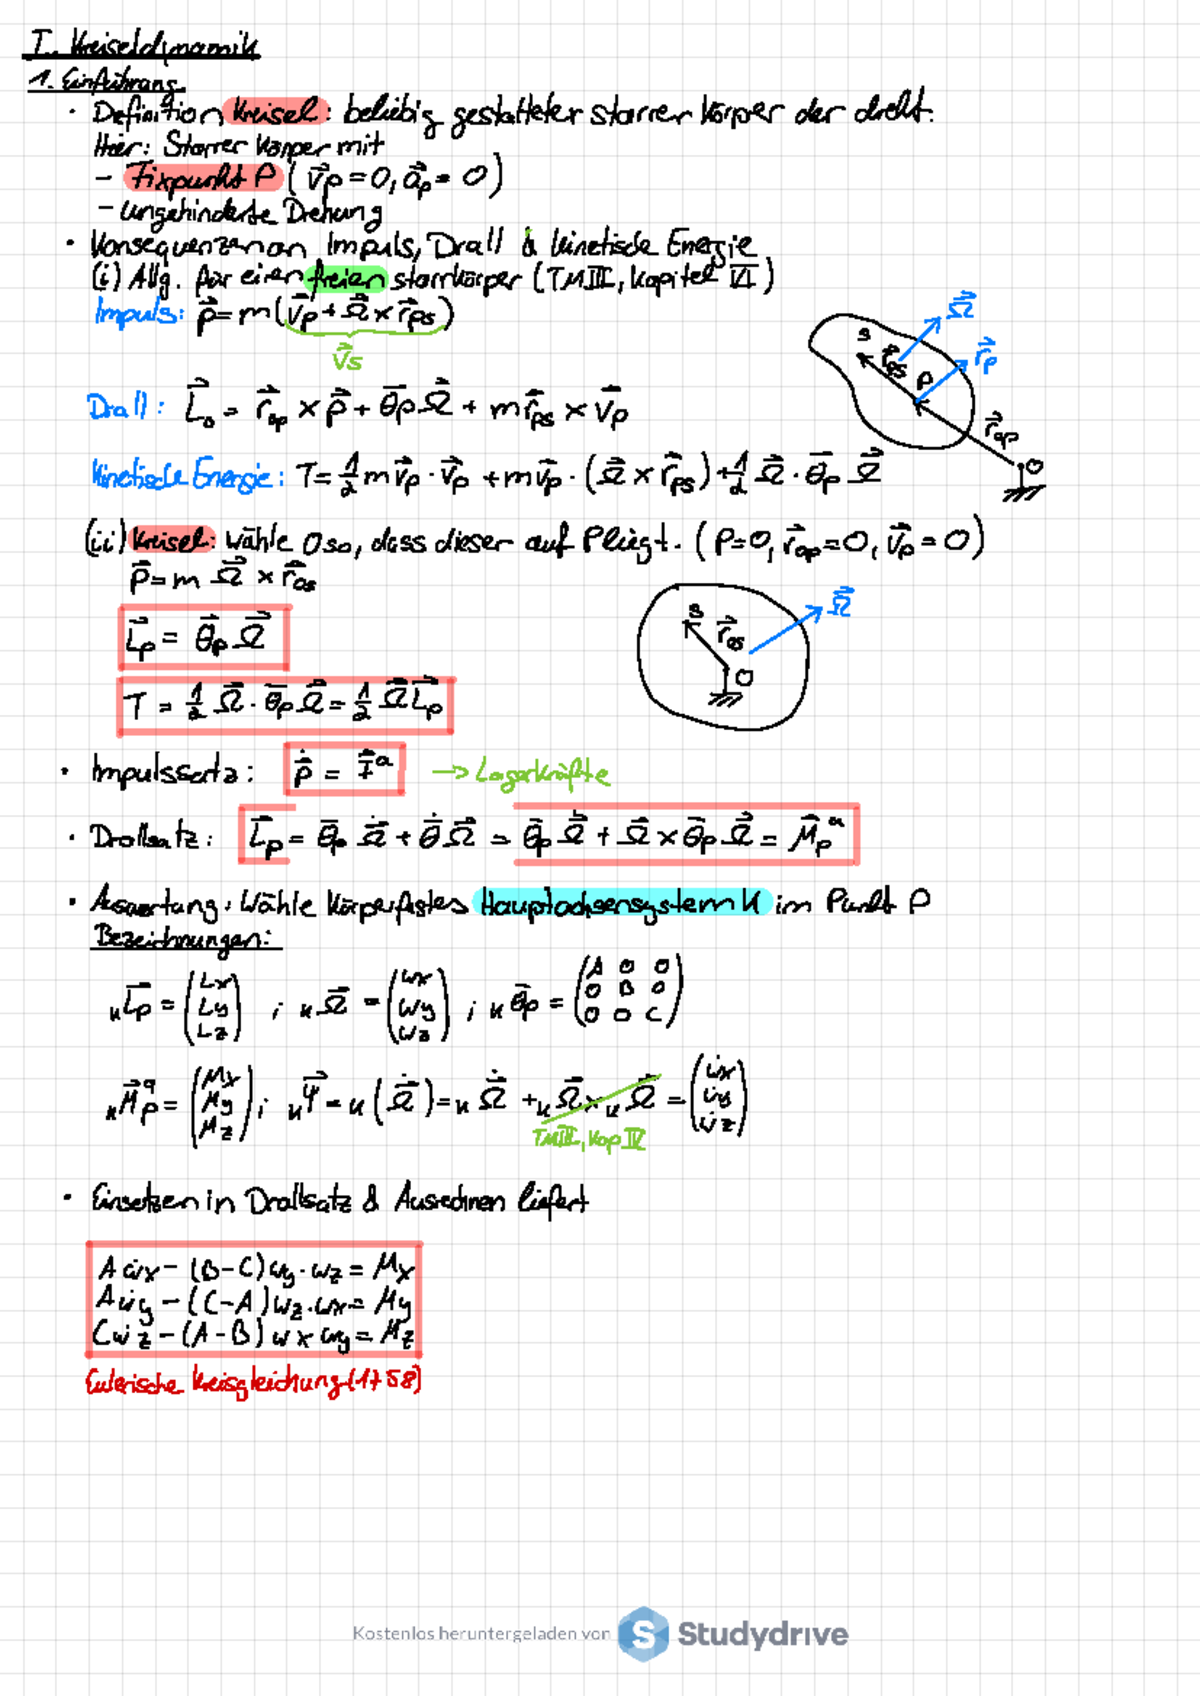 I. Kreiseldynamik
1. Einführung
• Definition Kreisel: beliebig gestalteter starrer Körper der dreht.
Hier: Starrer Körper mit
- Fixpunkt P ( v⃗p = 0, a⃗p = 0 )
- ungehinderte Drehung
• Konsequenzen an Impuls, Drall & kinetische Energie
(i) Allg. für einen freien starrkörper (TM III, Kapitel VI)
Impuls: p⃗ = m( v⃗p + Ω⃗ × r⃗ps )
v⃗s
Drall: L⃗o = r⃗op × p⃗ + θ̄p Ω⃗ + m r⃗ps × v⃗p
Kinetische Energie: T = 1/2 m v⃗p · v⃗p + m v⃗p · ( Ω⃗ × r⃗ps ) + 1/2 Ω⃗ · θ̄p Ω⃗
S r⃗ps Ω⃗ P r⃗p r⃗op O
(ii) Kreisel: wähle O so, dass dieser auf P liegt. ( P=O, r⃗op = 0, v⃗p = 0 )
p⃗ = m Ω⃗ × r⃗os
L⃗p = θ̄p Ω⃗
T = 1/2 Ω⃗ · θ̄p Ω⃗ = 1/2 Ω⃗ L⃗p
S r⃗os O Ω⃗
• Impulssatz: p⃗̇ = F⃗ᵃ → Lagerkräfte
• Drallsatz: L⃗p = θ̄p Ω⃗̇ + θ̄̇ Ω⃗ = θ̄p Ω⃗̇ + Ω⃗ × θ̄p Ω⃗ = M⃗pᵃ
• Auswertung: Wähle Körperfestes Hauptachsensystem K im Punkt P
Bezeichnungen:
K L⃗p = (Lx Ly Lz) ; K Ω⃗ = (wx wy wz) ; K θ̄p = (A 0 0 0 B 0 0 0 C)
K M⃗pᵃ = (Mx My Mz) ; K Ψ⃗ = K ( Ω⃗̇ ) = K Ω⃗̇ + K Ω⃗ × K Ω⃗ = (ẇx ẇy ẇz)
TM III, Kap IV
• Einsetzen in Drallsatz & Ausrechnen liefert
A ẇx - (B-C) wy · wz = Mx
A ẇy - (C-A) wz · wx = My
C ẇz - (A-B) wx wy = Mz
Eulerische Kreisgleichung (1758)
Kostenlos heruntergeladen von S Studydrive